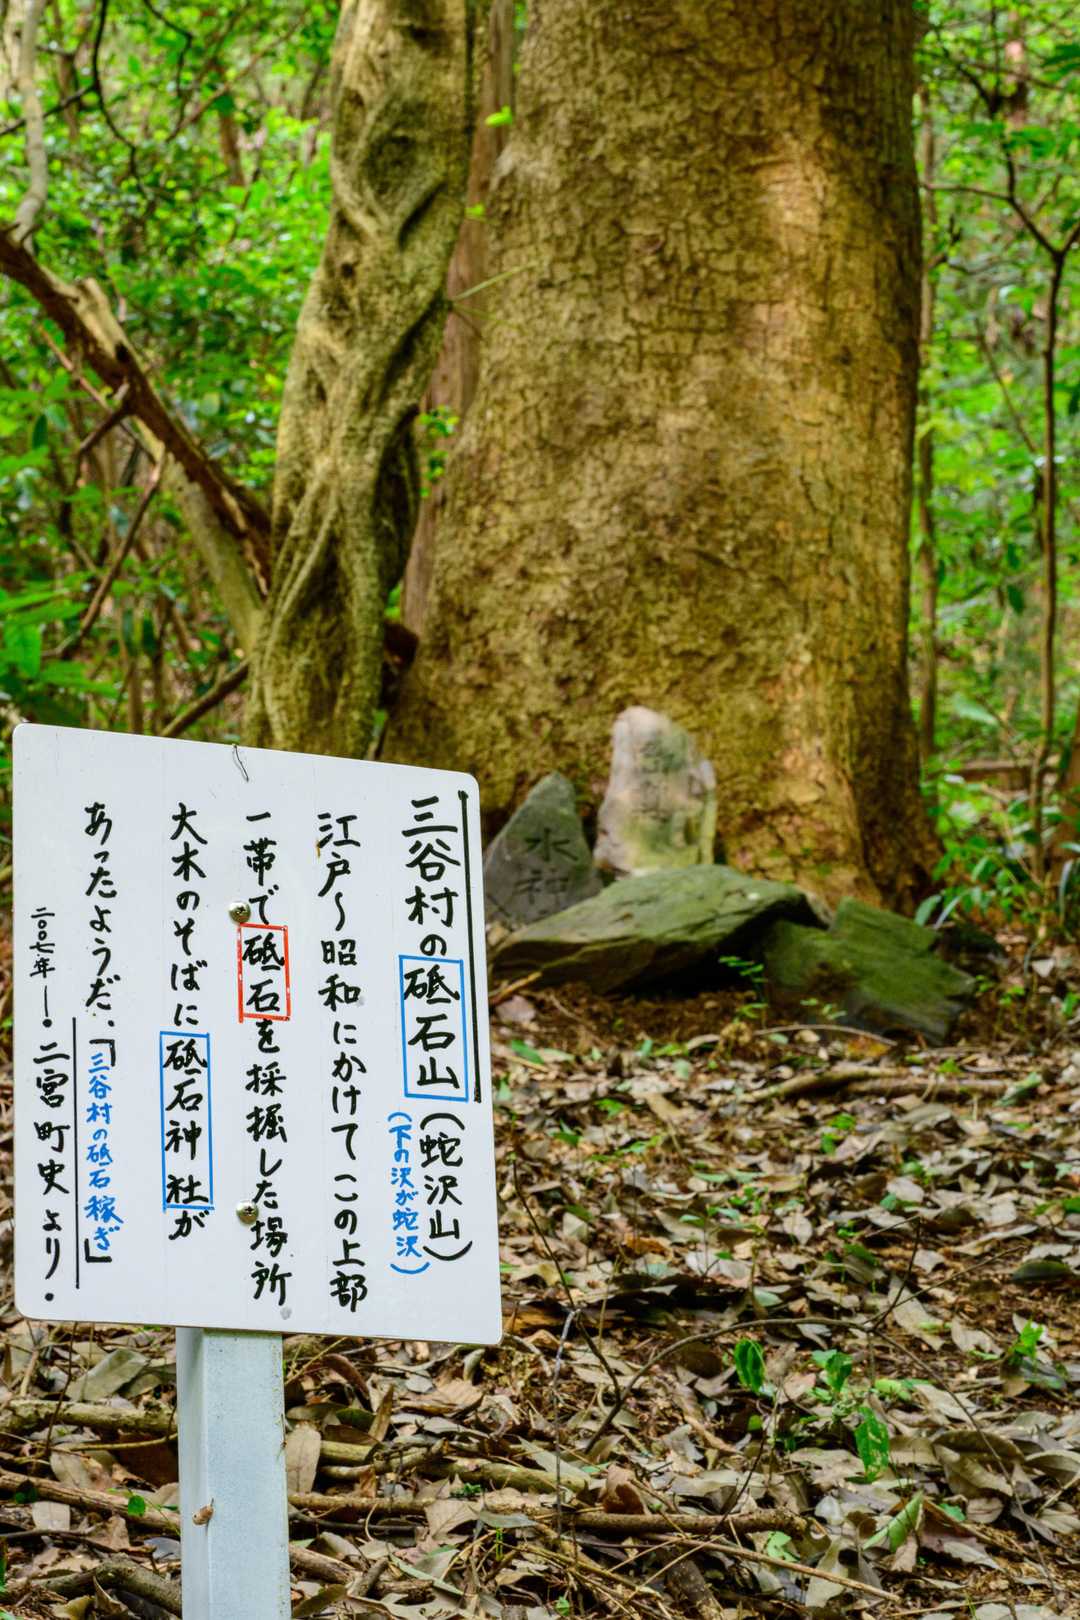 三谷村の砥石山(蛇沢山)
(下の沢が蛇沢)
江戸〜昭和にかけてこの上部
一帯で砥石を採掘した場所
大木のそばに砥石神社が
あったようだ、「三谷村の砥石稼ぎ」
二〇〇七年ー・二宮町史より・
水神